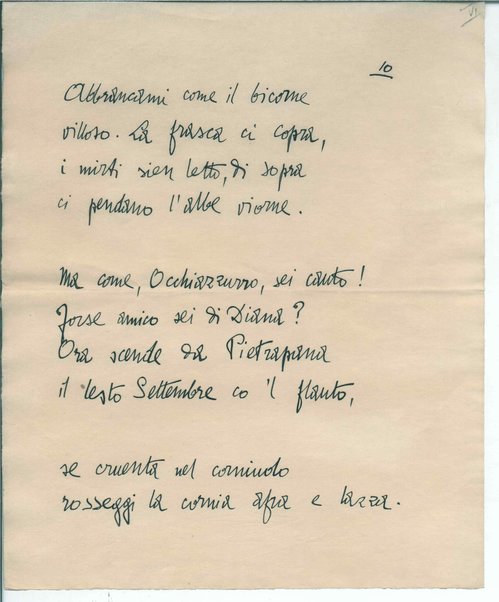 VI
10
Abbrancami come il bicorne
villoso. La frasca ci copra,
i mirti sien letto, di sopra
ci pendano l'albe viorne.
Ma come, Occhiazzurro, sei cauto!
Forse amico sei di Diana?
Ora scende da Pietrapana
il lesto Settembre co 'l flauto,
se cruenta nel corniuolo
rosseggi la cornia afra e lazza.